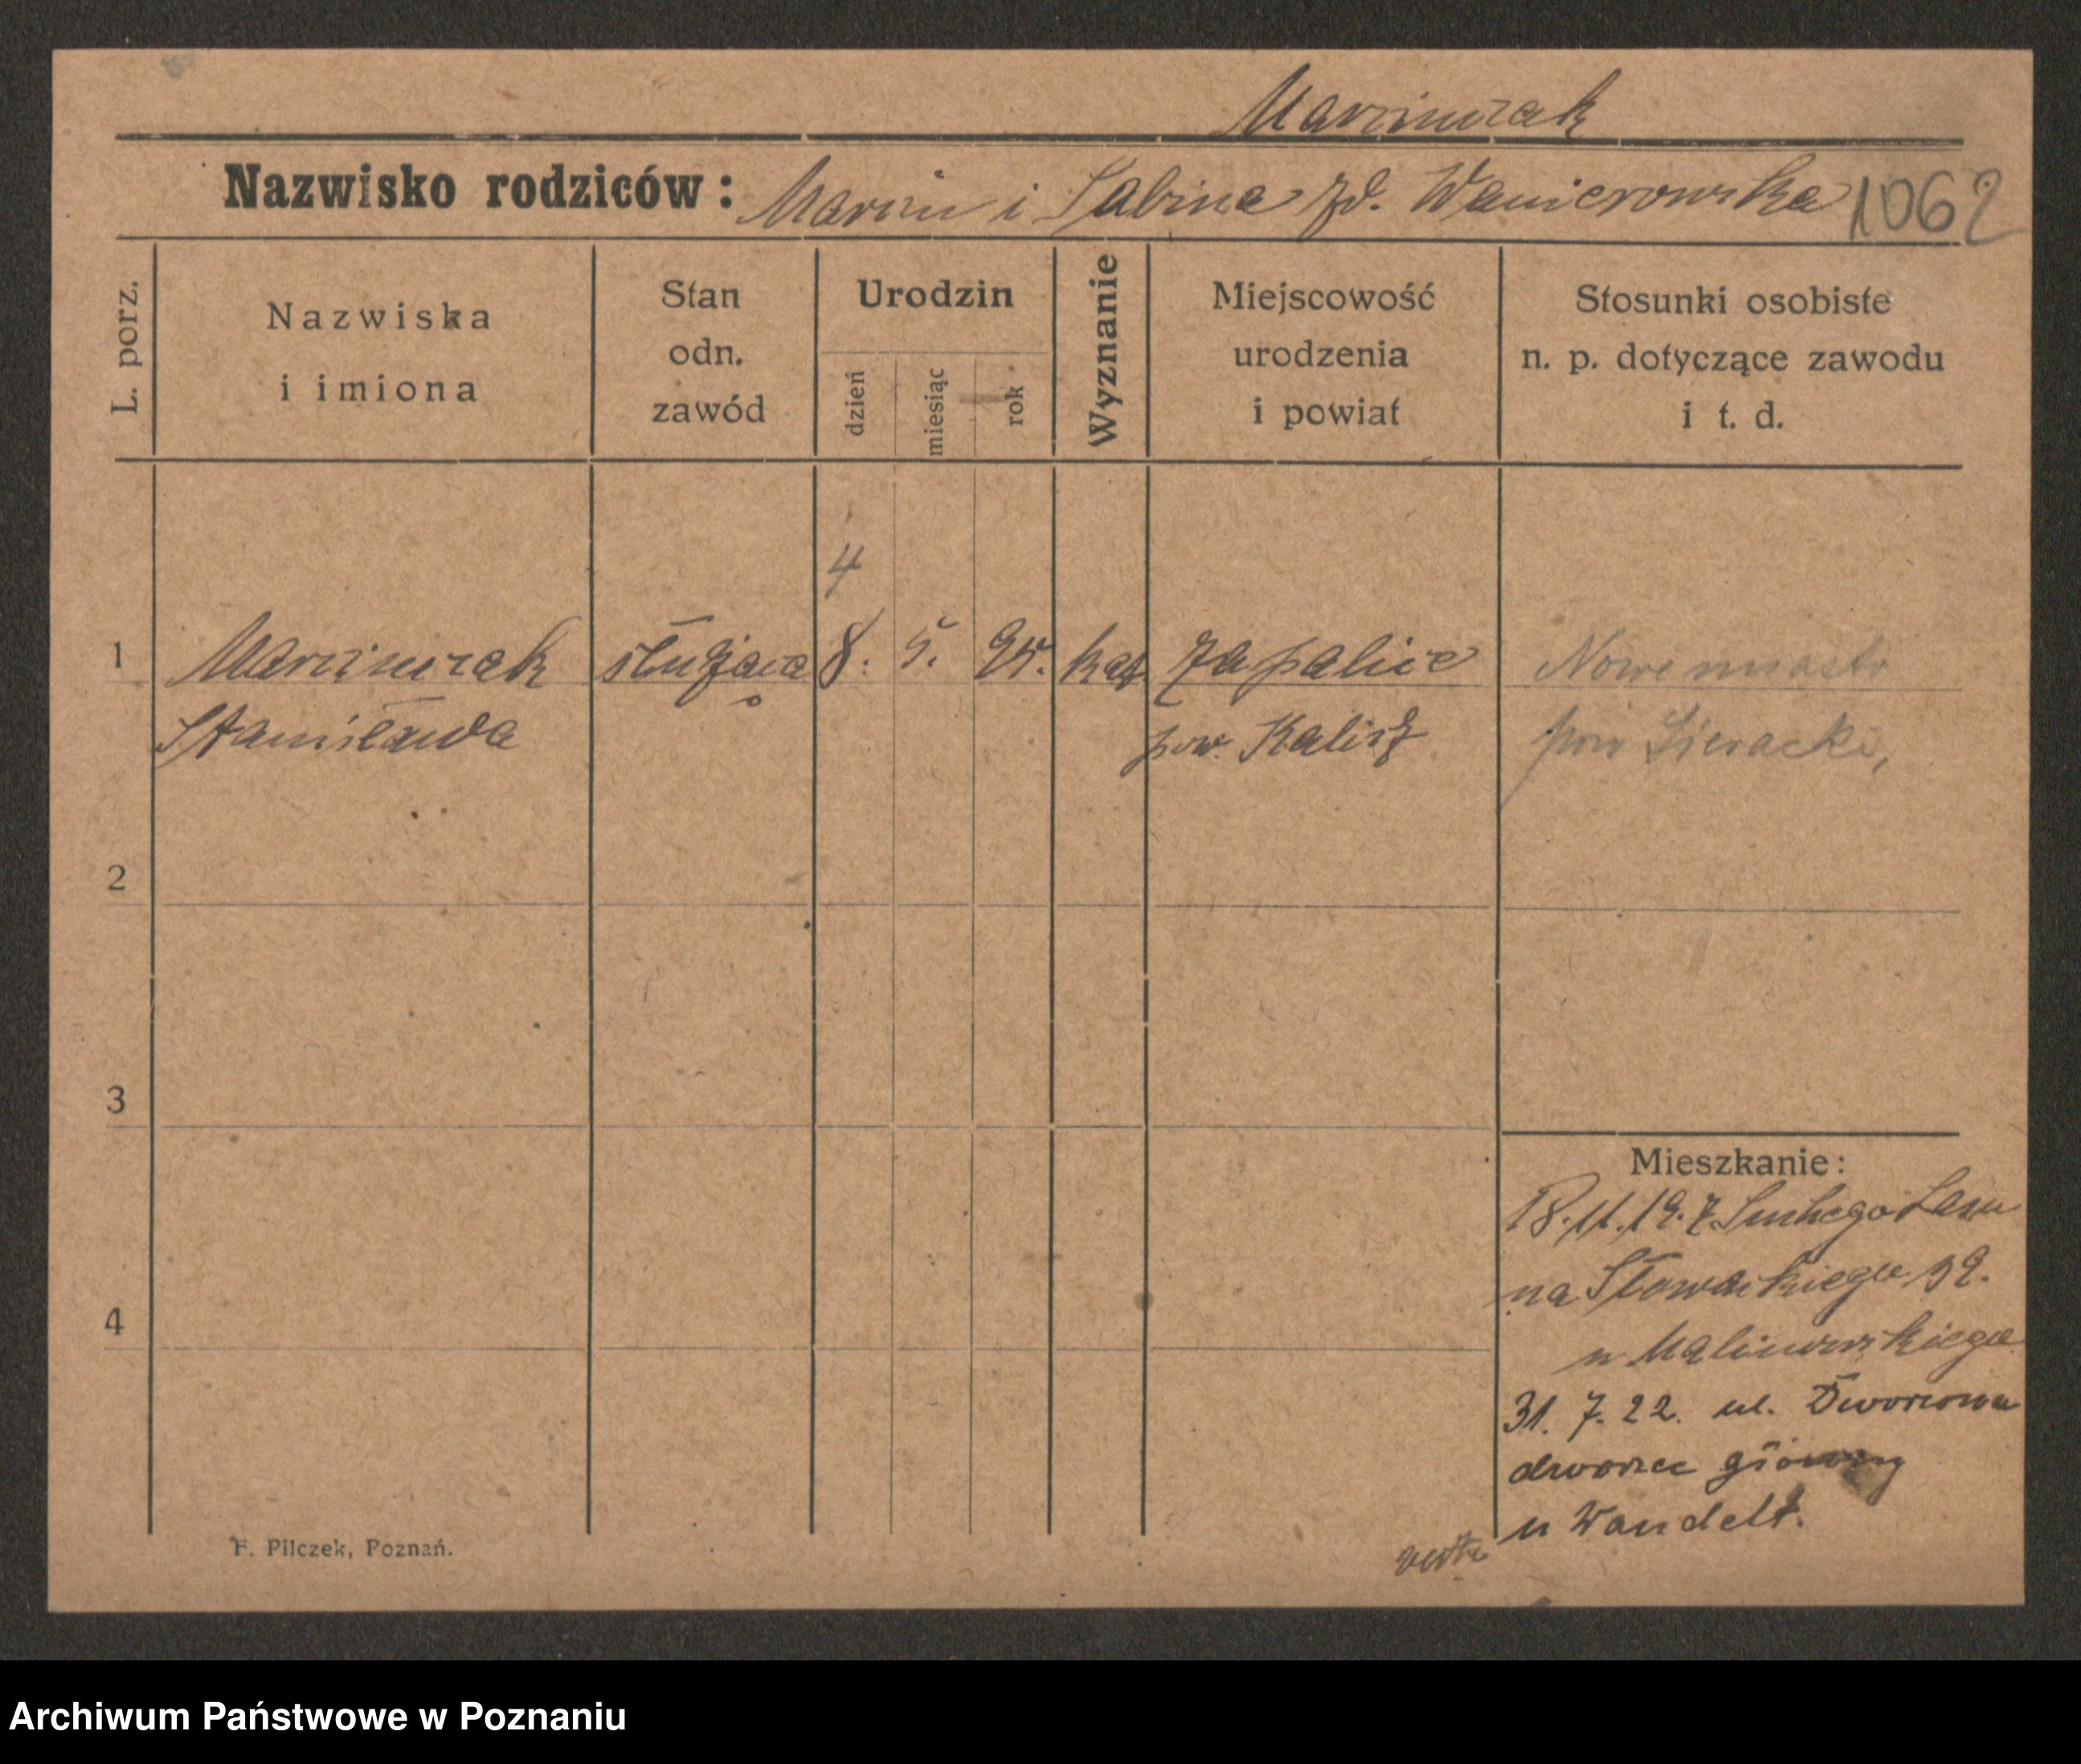 Marciniczak
Nazwisko rodziców: Marcin i Sabina zd. Wanierowska 1062
L. porz.
Nazwiska
i imiona
Stan
odn.
zawód
Urodzin
dzień
miesiąc
rok
Wyznanie
Miejscowość
urodzenia
i powiat
Stosunki osobiste
n. p. dotyczące zawodu
i t. d.
4
1 Marciniczak służąca 8. 5. 95. kat Zapalice Nowe miasto
Stanisława pow. Kalisz pow Sieracki,
2
3
4
Mieszkanie:
18.11.19. z Suchego Lasu
na Słowackiego 39.
u Malinowskiego
31. 7. 22. ul. Dworcowa
dworzec główny
u Wandelt.
verte
F. Pilczek, Poznań.
Archiwum Państwowe w Poznaniu